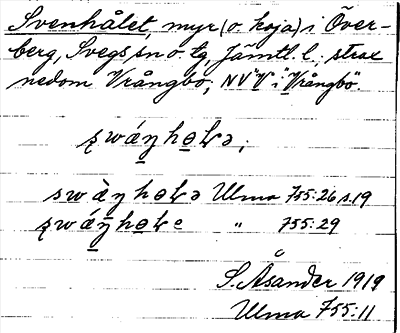 Svenhålet, myr (o. koja) i Över-
berg, Svegs sn o. tg, Jämtl. l.; strax
nedom Vrångbo, NV "V" i "Vrångbo".
Ulma 755:26, s. 19
" 755:29
S. Åsander 1919
Ulma 755:11